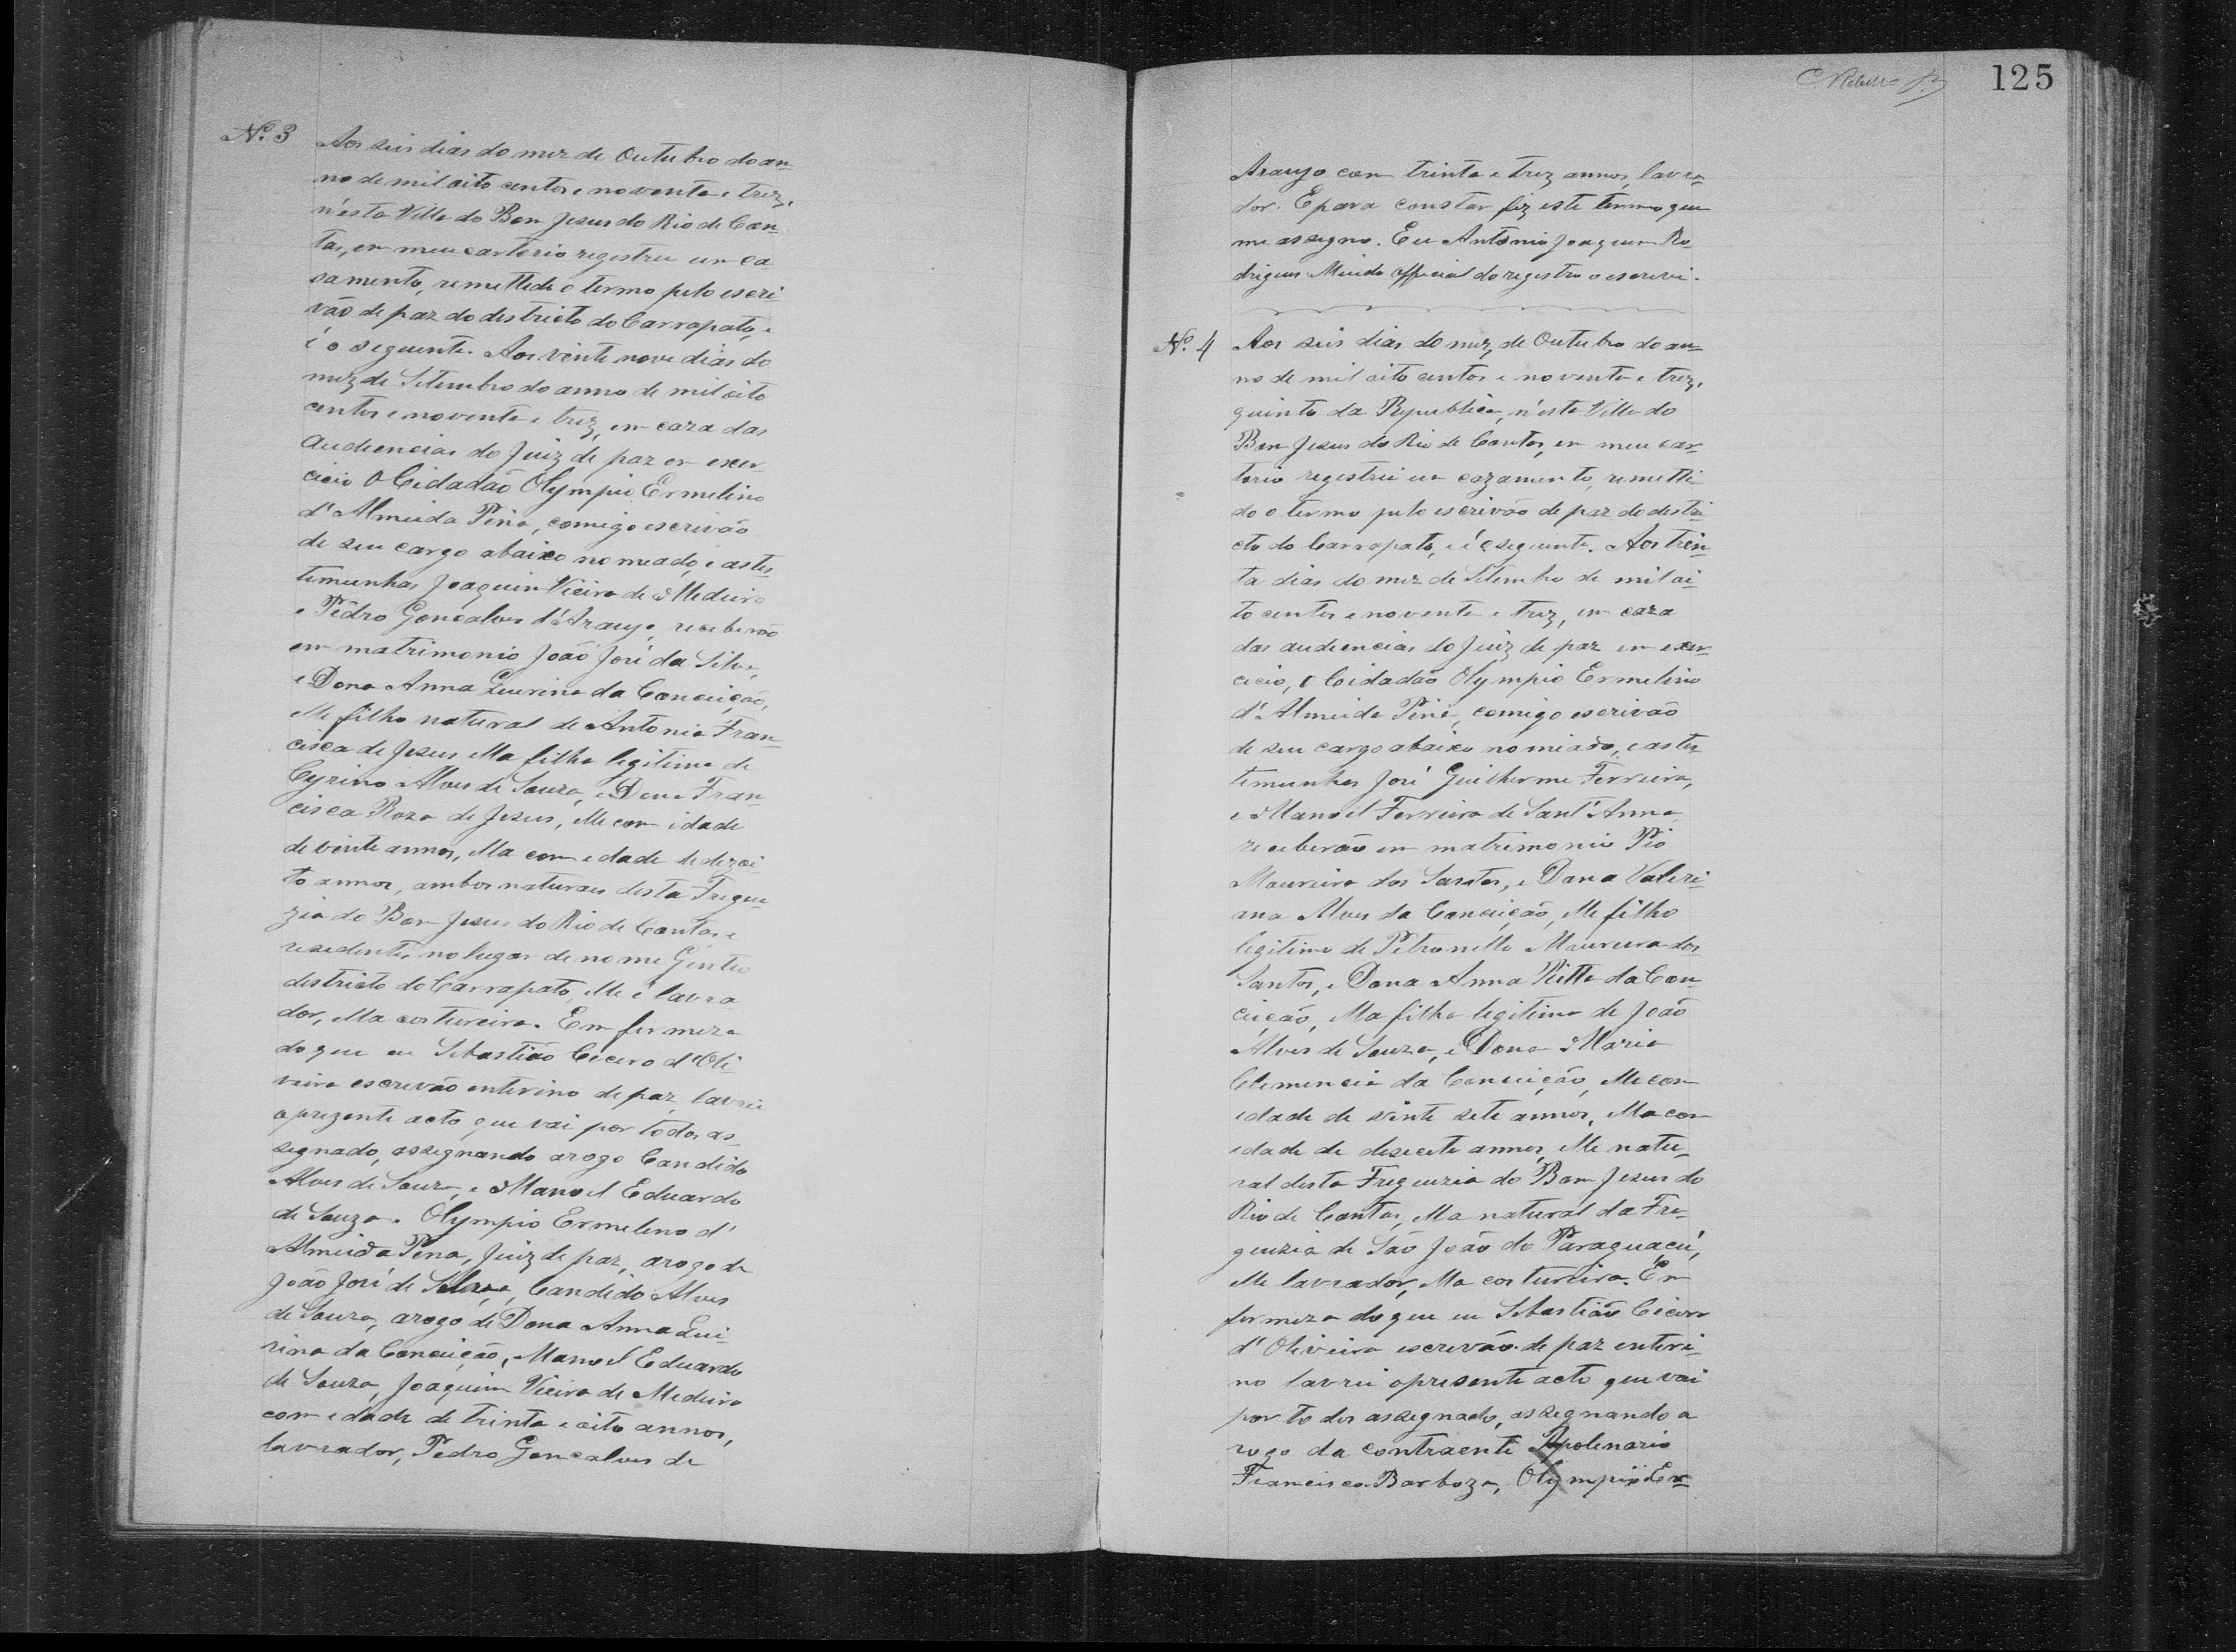 Nº 3 Aos seis dias do mez de Outubro do an-
no de mil oito centos e noventa e trez,
n'esta Villa do Bom Jesus do Rio de Con-
tas, em meu cartorio registrei um ca-
samento, remettido o termo pelo escri-
vão de paz do destricto do Carrapato, e
é o seguinte. Aos vinte nove dias do
mez de Setembro do anno de mil oito
centos e noventa e trez, em caza das
audiencias do Juiz de paz em exer-
cicio o Cidadão Olympio Ermelino
d'Almeida Pina, comigo escrivão
de seu cargo abaixo nomeado, e as tes-
temunhas Joaquim Vieira de Medeiro
e Pedro Gonçalves d'Araujo, receberão
em matrimonio João José da Silva,
e Dona Anna Quirina da Conceição,
Elle filho natural de Antonia Fran-
cisca de Jesus, Ella filha legitima de
Cyrino Alves de Souza, e Dona Fran-
cisca Roza de Jesus, Elle com idade
de vinte annos, Ella com edade de dezoi-
to annos, ambos naturaes desta Fregue-
zia do Bom Jesus do Rio de Contas e
residentes no lugar de nome Gentio
destricto do Carrapato, Elle é lavra
dor, Ella costureira. Em firmeza
do que eu Sebastião Cicero d'Oli
veira escrevão enterino de paz, lavrei
o prezente acto que vai por todos as-
segnado, assegnando arogo Candido
Alves de Souza, e Manoel Eduardo
de Souza. Olympio Ermeleno d'
Almeida Pena, Juiz de paz, arogo de
João José de Candido Alves
de Souza, arogo de Dona Anna Qui-
rina da Conceição, Manoel Eduardo
de Souza, Joaquim Vieira de Medeiro
com edade de trinta e oito annos,
lavrador, Pedro Goncalves de
125
Araujo com trinta e trez annos, lavra-
dor. E para constar fiz este termo que
me assegno. Eu Antonio Joaquim Ro-
drigues official do registro o escrevi.
Nº 4 Aos seis dias do mez, de Outubro do an-
no de mil oito centos e noventa e trez,
quinto da Republica, n'esta Villa do
Bom Jesus do Rio de Contas, em meu car-
torio registrei um cazamento, remetti-
do o termo pelo escrivão de paz do destri-
cto do Carrapato, e é o seguinte. Aos trin-
ta dias do mez de Setembro de mil oi-
to centos e noventa e trez, em caza
das audiencias do Juiz de paz em exer-
cicio, o Cidadão Olympio Ermelino
d'Almeida Pina, comigo escrivão
de seu cargo abaixo nomiado, e as tes-
temunhas José Guilherme Ferreira,
e Manoel Ferreira de Sant'Anna
receberão em matrimonio Pio
Maureira dos Santos, e Dona Valeri-
ana Alves da Conceição, Elle filho
legitimo de Petronillo Maureira dos
Santos, e Dona Anna Ritta da Con-
ceição, Ella filha legitima de João
Alves de Souza, e Dona Maria
Clemencia da Conceição, Elle com
edade de vinte sete annos, Ella com
edade de desesete annos, Elle natu-
ral desta Freguezia do Bom Jesus do
Rio de Contas, Ella natural da Fre-
guezia de São João do Paraguaçú,
Elle lavrador, Ella costureira. Em
fermeza do que eu Sebastião Cicero
d'Oliveira escrevão de paz enteri-
no lavrei o presente acto que vai
por todos assegnado, assegnando a
rogo da contraente Apolenario
Francisco Barboza, Olympio Er-